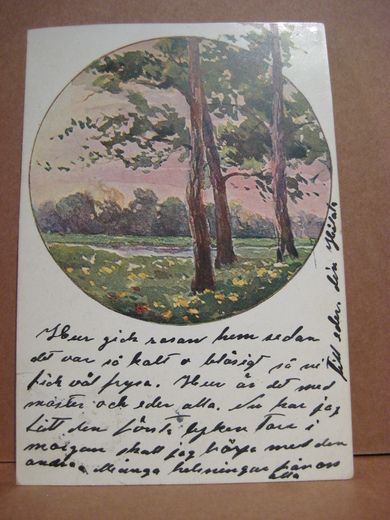 Hur gick resan hem sedan
det var så kalt o blåsigt så ni
fick väl frysa. Hur är det med
moster och eder alla. Nu har jag
satt den första tyken Tars i
morgon skall jag börja med den
andra Många helsningar från oss
alla
till eder. din